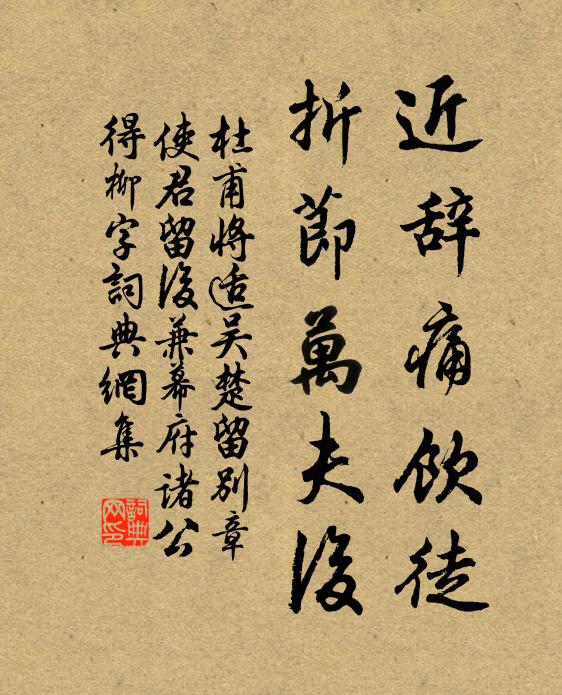 近辞痛飲徒
折節萬夫後
杜甫將适吴楚留別章
使君留後兼幕府諸公
得柳字詞典網集
詞典
网印